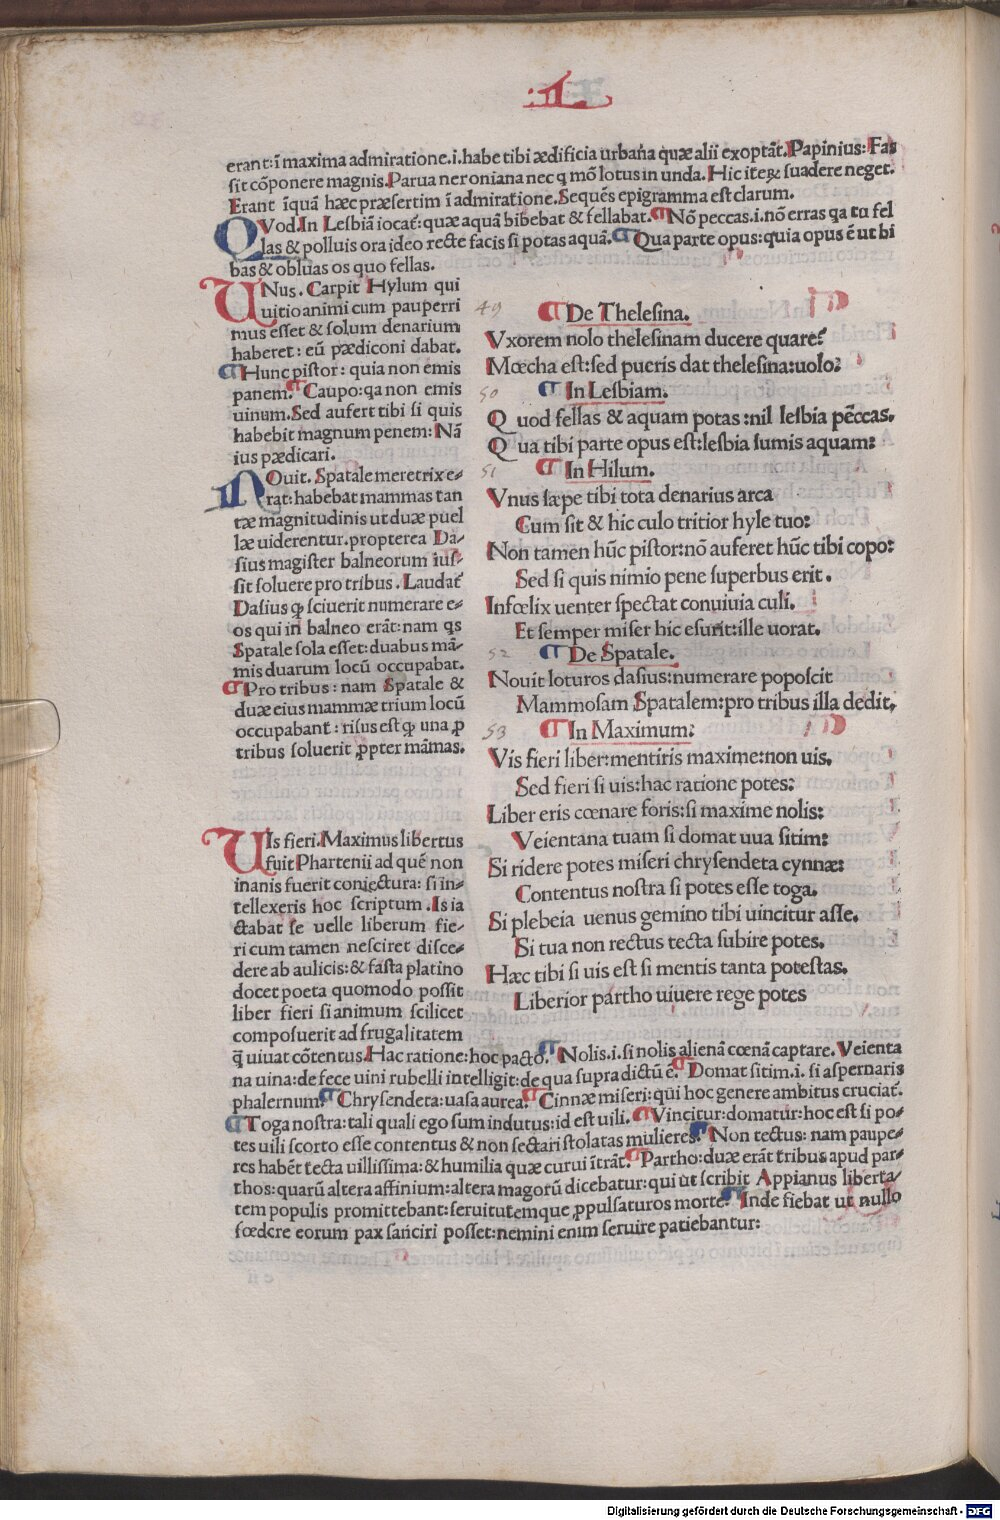 :II
erant:ī maxima admiratione.i.habe tibi ædificia urbana quæ alii exoptāt.Papinius:Fas
sit cōponere magnis.Parua neroniana nec q mō lotus in unda. Hic iteꝝ suadere neget.
Erant īquā hæc præsertim ī admiratione.Sequēs epigramma est clarum.
QVod.In Lesbiā iocat̄:quæ aquā bibebat & fellabat.¶Nō peccas.i.nō erras qa tu fel
las & polluis ora ideo recte facis si potas aquā.¶Qua parte opus:quia opus ē ut bi
bas & obluas os quo fellas.
UNus. Carpit Hylum qui
uitio animi cum pauperri
mus esset & solum denarium
haberet: eū pædiconi dabat.
¶Hunc pistor: quia non emis
panem.¶Caupo:qa non emis
uinum.Sed aufert tibi si quis
habebit magnum penem: Nā
ius pædicari.
NOuit. Spatale meretrix e-
rat:habebat mammas tan
tæ magnitudinis ut duæ puel
læ uiderentur.propterea Da-
sius magister balneorum ius-
sit soluere pro tribus. Laudat̄
Dasius ꝙ sciuerit numerare e-
os qui in balneo erāt:nam qs
Spatale sola esset:duabus mā-
mis duarum locū occupabat.
¶Pro tribus: nam Spatale &
duæ eius mammæ trium locū
occupabant: risus est ꝙ una ꝓ
tribus soluerit ꝓpter māmas.
49 ¶De Thelesina.
Vxorem nolo thelesinam ducere quare?
Mœcha est:sed pueris dat thelesina:uolo:
50 ¶In Lesbiam.
Quod fellas & aquam potas:nil lesbia pēccas.
Qua tibi parte opus est:lesbia sumis aquam:
51 ¶In Hilum.
Vnus sæpe tibi tota denarius arca
Cum sit & hic culo tritior hyle tuo:
Non tamen hūc pistor:nō auferet hūc tibi copo:
Sed si quis nimio pene superbus erit.
Infœlix uenter spectat conuiuia culi.
Et semper miser hic esurit:ille uorat.
52 ¶De Spatale.
Nouit loturos dasius:numerare poposcit
Mammosam Spatalem:pro tribus illa dedit.
53 ¶In Maximum:
Vis fieri liber:mentiris maxime:non uis.
Sed fieri si uis:hac ratione potes:
Liber eris cœnare foris:si maxime nolis:
Veientana tuam si domat uua sitim:
Si ridere potes miseri chrysendeta cynnæ:
Contentus nostra si potes esse toga.
Si plebeia uenus gemino tibi uincitur asse.
Si tua non rectus tecta subire potes.
Hæc tibi si uis est si mentis tanta potestas.
Liberior partho uiuere rege potes
UIs fieri.Maximus libertus
fuit Phartenii ad quē non
inanis fuerit coniectura: si in-
tellexeris hoc scriptum.Is ia
ctabat se uelle liberum fie-
ri cum tamen nesciret disce-
dere ab aulicis:& fasta platino
docet poeta quomodo possit
liber fieri si animum scilicet
composuerit ad frugalitatem
q̄ uiuat cōtentus.Hac ratione:hoc pacto.¶Nolis.i.si nolis alienā cœnā captare.Veienta
na uina:de fece uini rubelli intelligit:de qua supra dictū ē.¶Domat sitim.i. si aspernaris
phalernum.¶Chrysendeta:uasa aurea.¶Cinnæ miseri:qui hoc genere ambitus cruciat̄.
¶Toga nostra:tali quali ego sum indutus:id est uili.¶Vincitur:domatur:hoc est si po-
tes uili scorto esse contentus & non sectari stolatas mulieres.¶Non tectus: nam paupe-
res habēt tecta uilissima:& humilia quæ curui ītrāt.¶Partho:duæ erāt tribus apud par-
thos:quarū altera affinium:altera magorū dicebatur:qui ut scribit Appianus liberta-
tem populis promittebant:seruitutemque ꝓpulsaturos morte.¶Inde fiebat ut nullo
fœdere eorum pax sanciri posset:nemini enim seruire patiebantur:
Digitalisierung gefördert durch die Deutsche Forschungsgemeinschaft - DFG